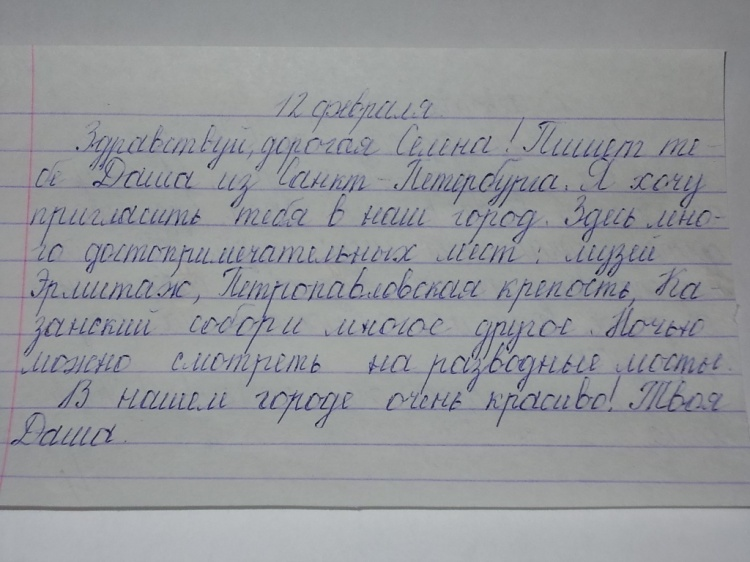 12 февраля.
Здравствуй, дорогая Селена! Пишет те-
бе Даша из Санкт-Петербурга. Я хочу
пригласить тебя в наш город. Здесь мно-
го достопримечательных мест: музей
Эрмитаж, Петропавловская крепость, Ка-
занский собор и многое другое. Ночью
можно смотреть на разводные мосты.
В нашем городе очень красиво! Твоя
Даша.